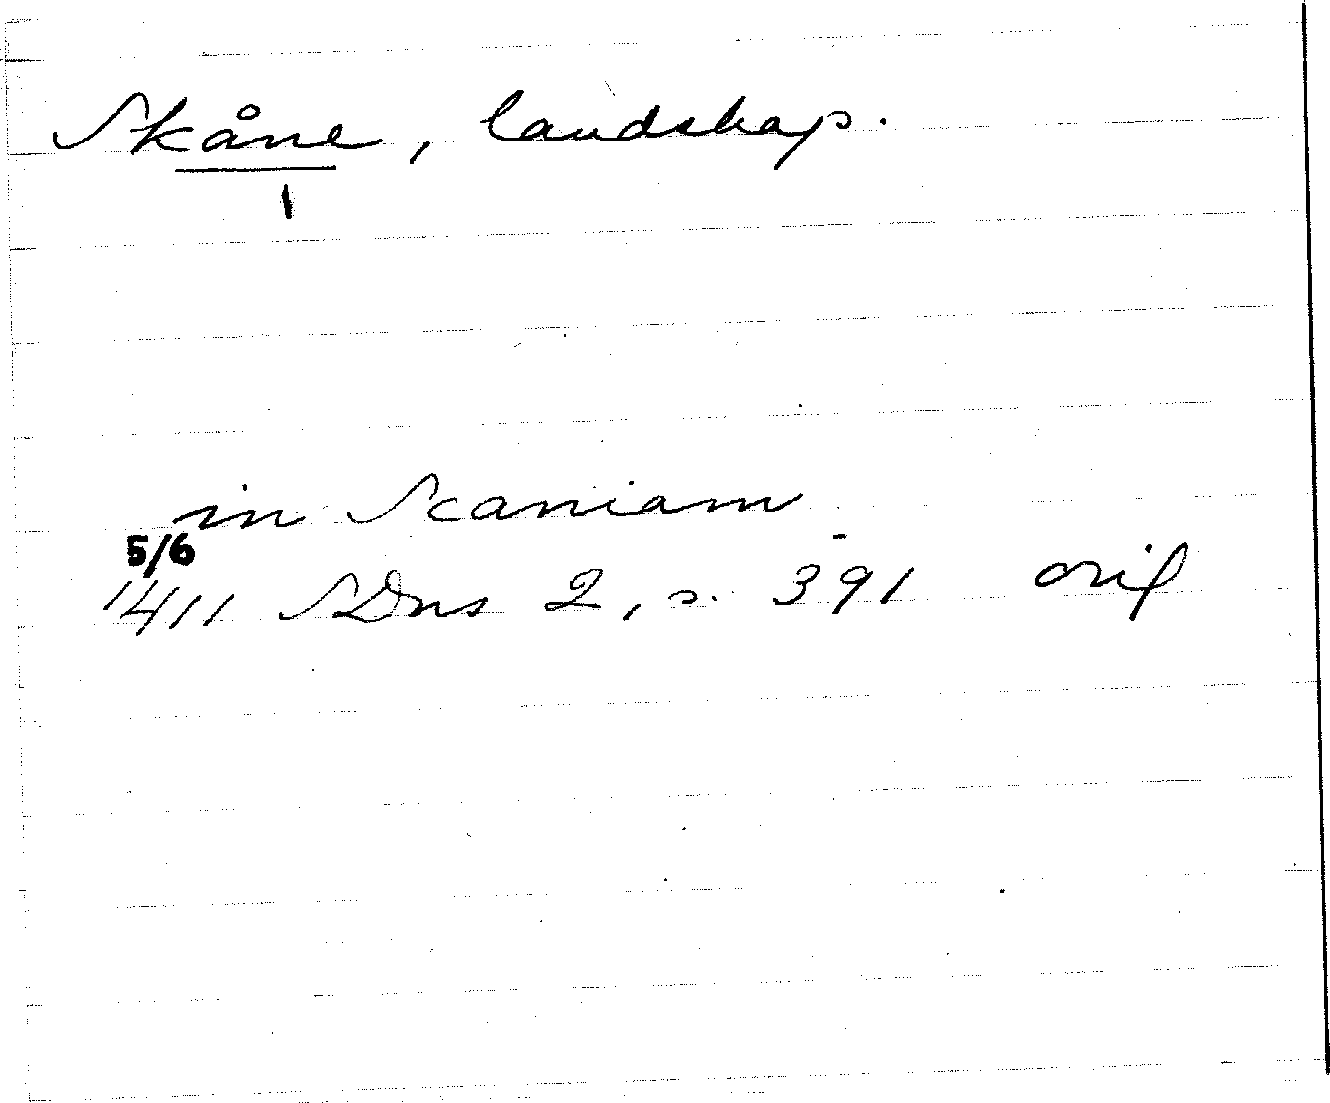 Skåne, landskap.
in Scaniam
5/6
1411 SDns 2, s. 391 orig